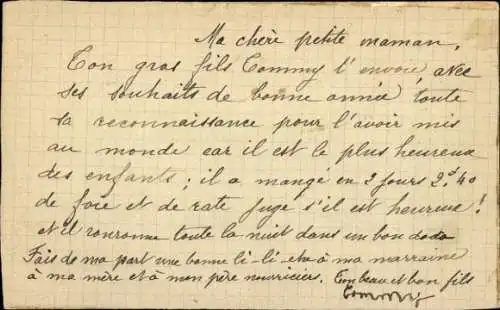 Ma chère petite maman,
Ton gros fils Tommy t'envoie, avec
ses souhaits de bonne année toute
sa reconnaissance pour l'avoir mis
au monde car il est le plus heureux
des enfants ; il a mangé en 2 jours 2.40
de foie et de rate juge s'il est heureux !
et il ronronne toute la nuit dans un bon dodo
Fais de ma part une bonne li-li- à ma marraine
à ma mère et à mon père nourriciers. Ton beau et bon fils
Tommy